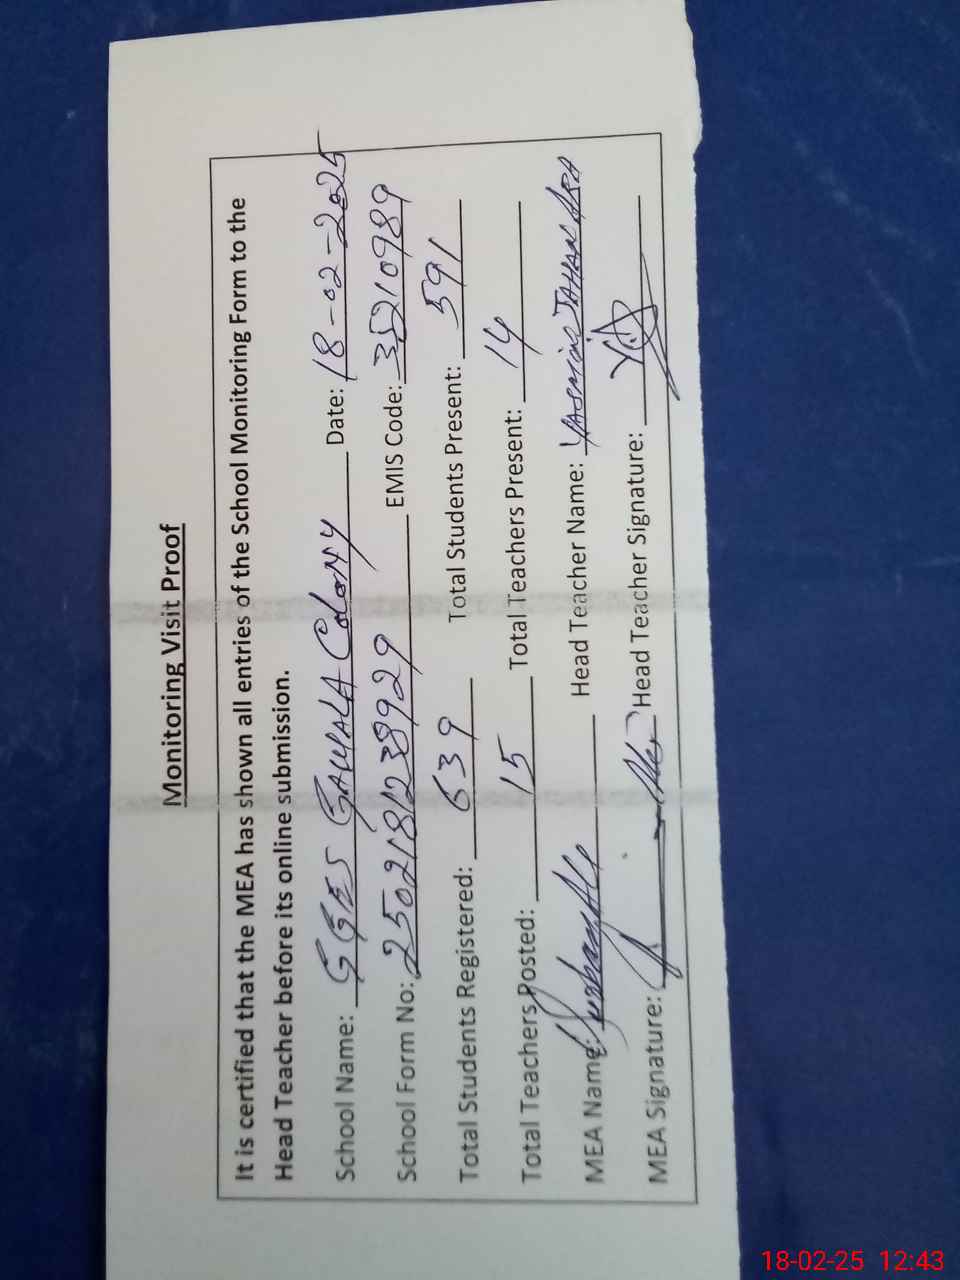 Monitoring Visit Proof
It is certified that the MEA has shown all entries of the School Monitoring Form to the
Head Teacher before its online submission.
School Name: GGES GAWALA COLONY Date: 18-02-2025
School Form No: 250218123 8929 EMIS Code: 35210989
Total Students Registered: 639 Total Students Present: 591
Total Teachers Posted: 15 Total Teachers Present: 14
MEA Name: Head Teacher Name: YASMIN JAHAN ARA
MEA Signature: Head Teacher Signature:
18-02-25 12:43